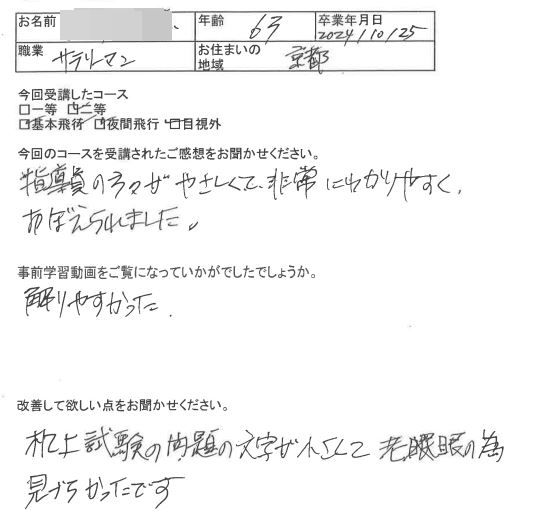 お名前 年齢 63 卒業年月日 2024/10/25
職業 サラリーマン お住まいの地域 京都
今回受講したコース
□一等 ☑二等
☑基本飛行 ☑夜間飛行 ☑目視外
今回のコースを受講されたご感想をお聞かせください。
指導員の方々がやさしくて、非常にわかりやすく、
おぼえられました。
事前学習動画をご覧になっていかがでしたでしょうか。
解りやすかった.
改善して欲しい点をお聞かせください。
机上試験の問題の文字が小さくて老眼眼の為
見づらかったです